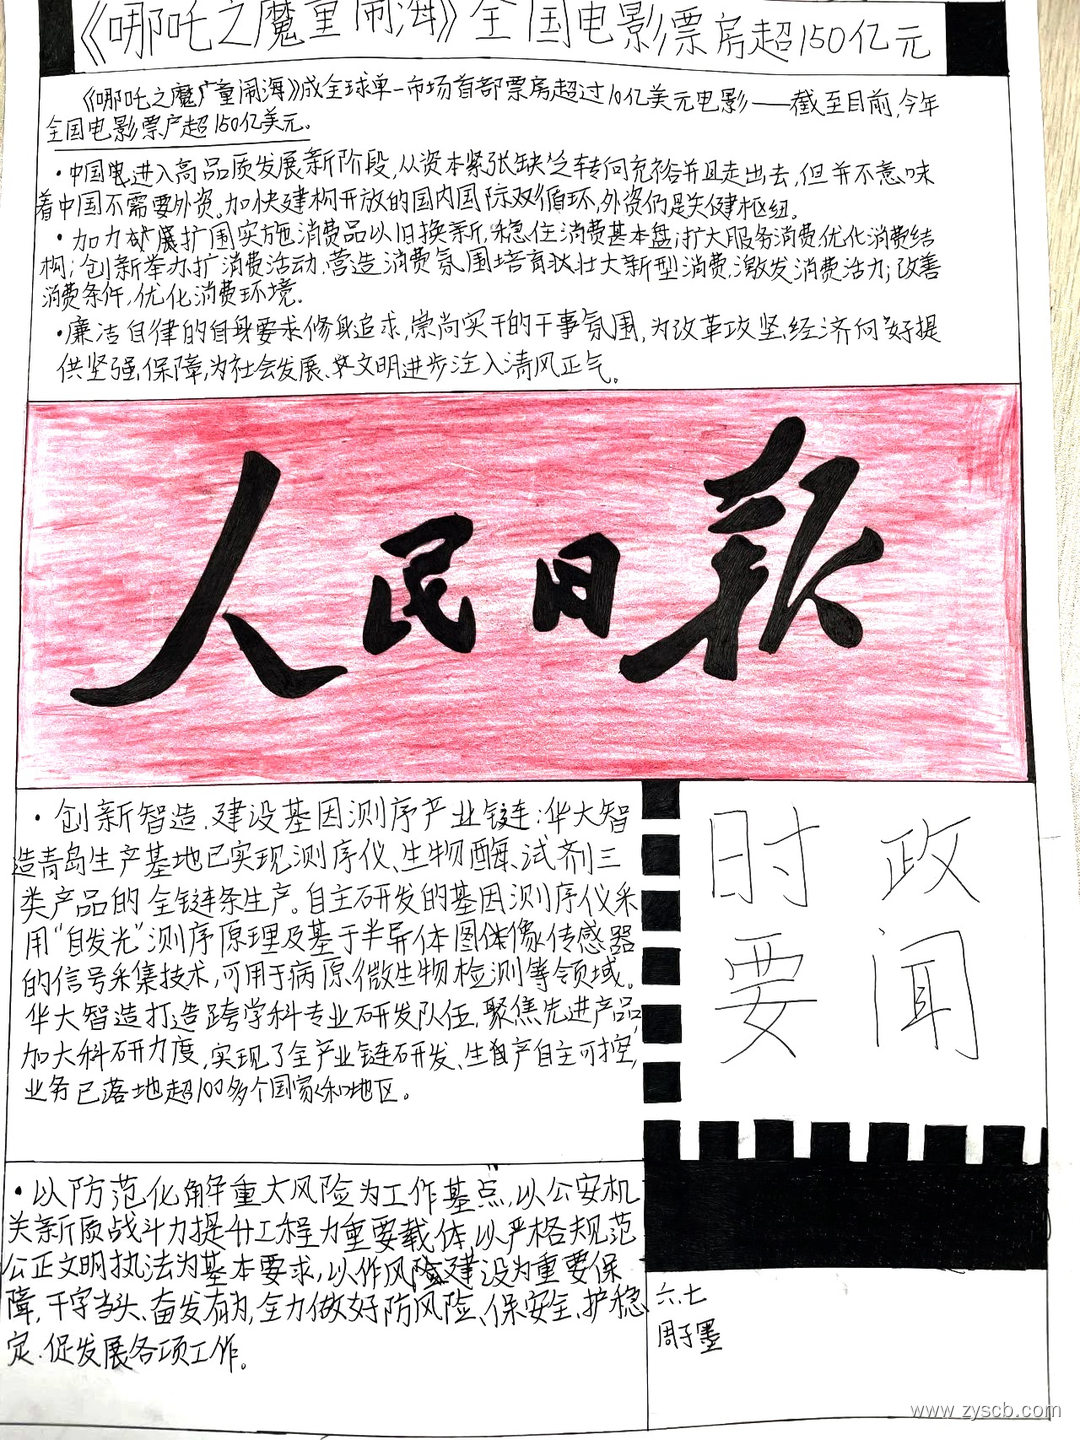 《哪吒之魔童闹海》全国电影票房超150亿元
《哪吒之魔童闹海》成全球单一市场首部票房超过10亿美元电影——截至目前,今年
全国电影票产超150亿美元。
·中国电进入高品质发展新阶段,从资本紧张缺乏转向充裕并且走出去,但并不意味
着中国不需要外资。加快建构开放的国内国际双循环,外资仍是关健枢纽。
·加力扩展扩围实施消费品以旧换新,稳住消费基本盘;扩大服务消费优化消费结
构;创新举办扩消费活动,营造消费氛围培育壮大新型消费,激发消费活力;改善
消费条件,优化消费环境.
·廉洁自律的自身要求修身追求,崇尚实干的干事氛围,为改革攻坚,经济向好提
供坚强保障,为社会发展、文明进步注入清风正气。
人民日报
·创新智造,建设基因测序产业链:华大智
造青岛生产基地已实现测序仪、生物酶、试剂三
类产品的全链条生产。自主研发的基因测序仪采
用“自发光”测序原理及基于半导体图体像传感器
的信号采集技术,可用于病原微生物检测等领域。
华大智造打造跨学科专业研发队伍,聚焦先进产品
加大科研力度,实现了全产业链研发、生产自主可控,
业务已落地超100多个国家和地区。
时政
要闻
·以防范化解重大风险为工作基点,以公安机
关新质战斗力提升工程为重要载体,以严格规范
公正文明执法为基本要求,以作风建设为重要保
障,干字当头、奋发有为,全力做好防风险、保安全、护稳
定、促发展各项工作。
六.七
周子墨
www.zyscb.com